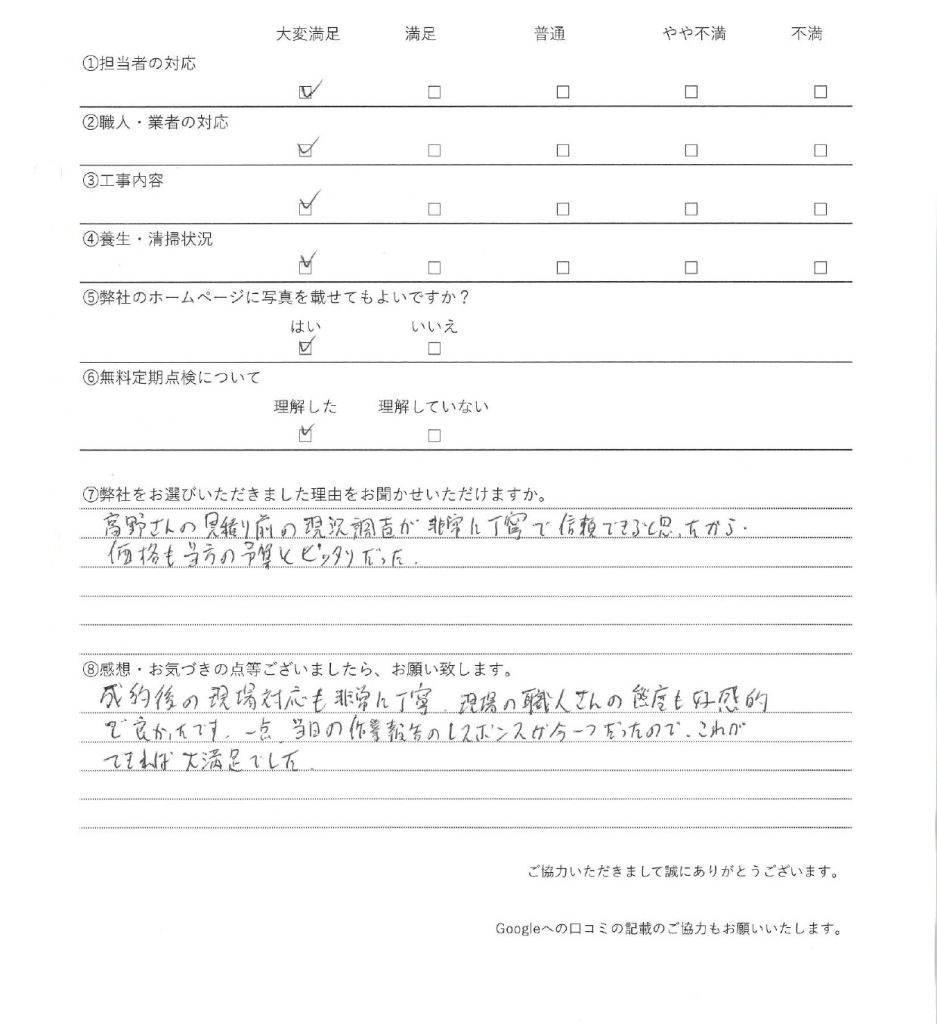 大変満足 満足 普通 やや不満 不満
①担当者の対応
②職人・業者の対応
③工事内容
④養生・清掃状況
⑤弊社のホームページに写真を載せてもよいですか？
はい いいえ
⑥無料定期点検について
理解した 理解していない
⑦弊社をお選びいただきました理由をお聞かせいただけますか。
高野さんの見積り前の現況調査が非常に丁寧で信頼できると思ったから.
価格も当方の予算とピッタリだった.
⑧感想・お気づきの点等ございましたら、お願い致します。
成約後の現場対応も非常に丁寧.現場の職人さんの態度も好感的
で良かったです.一点、当日の作業報告のレスポンスが今一つだったので、これが
できれば大満足でした.
ご協力いただきまして誠にありがとうございます。
Googleへの口コミの記載のご協力もお願いいたします。